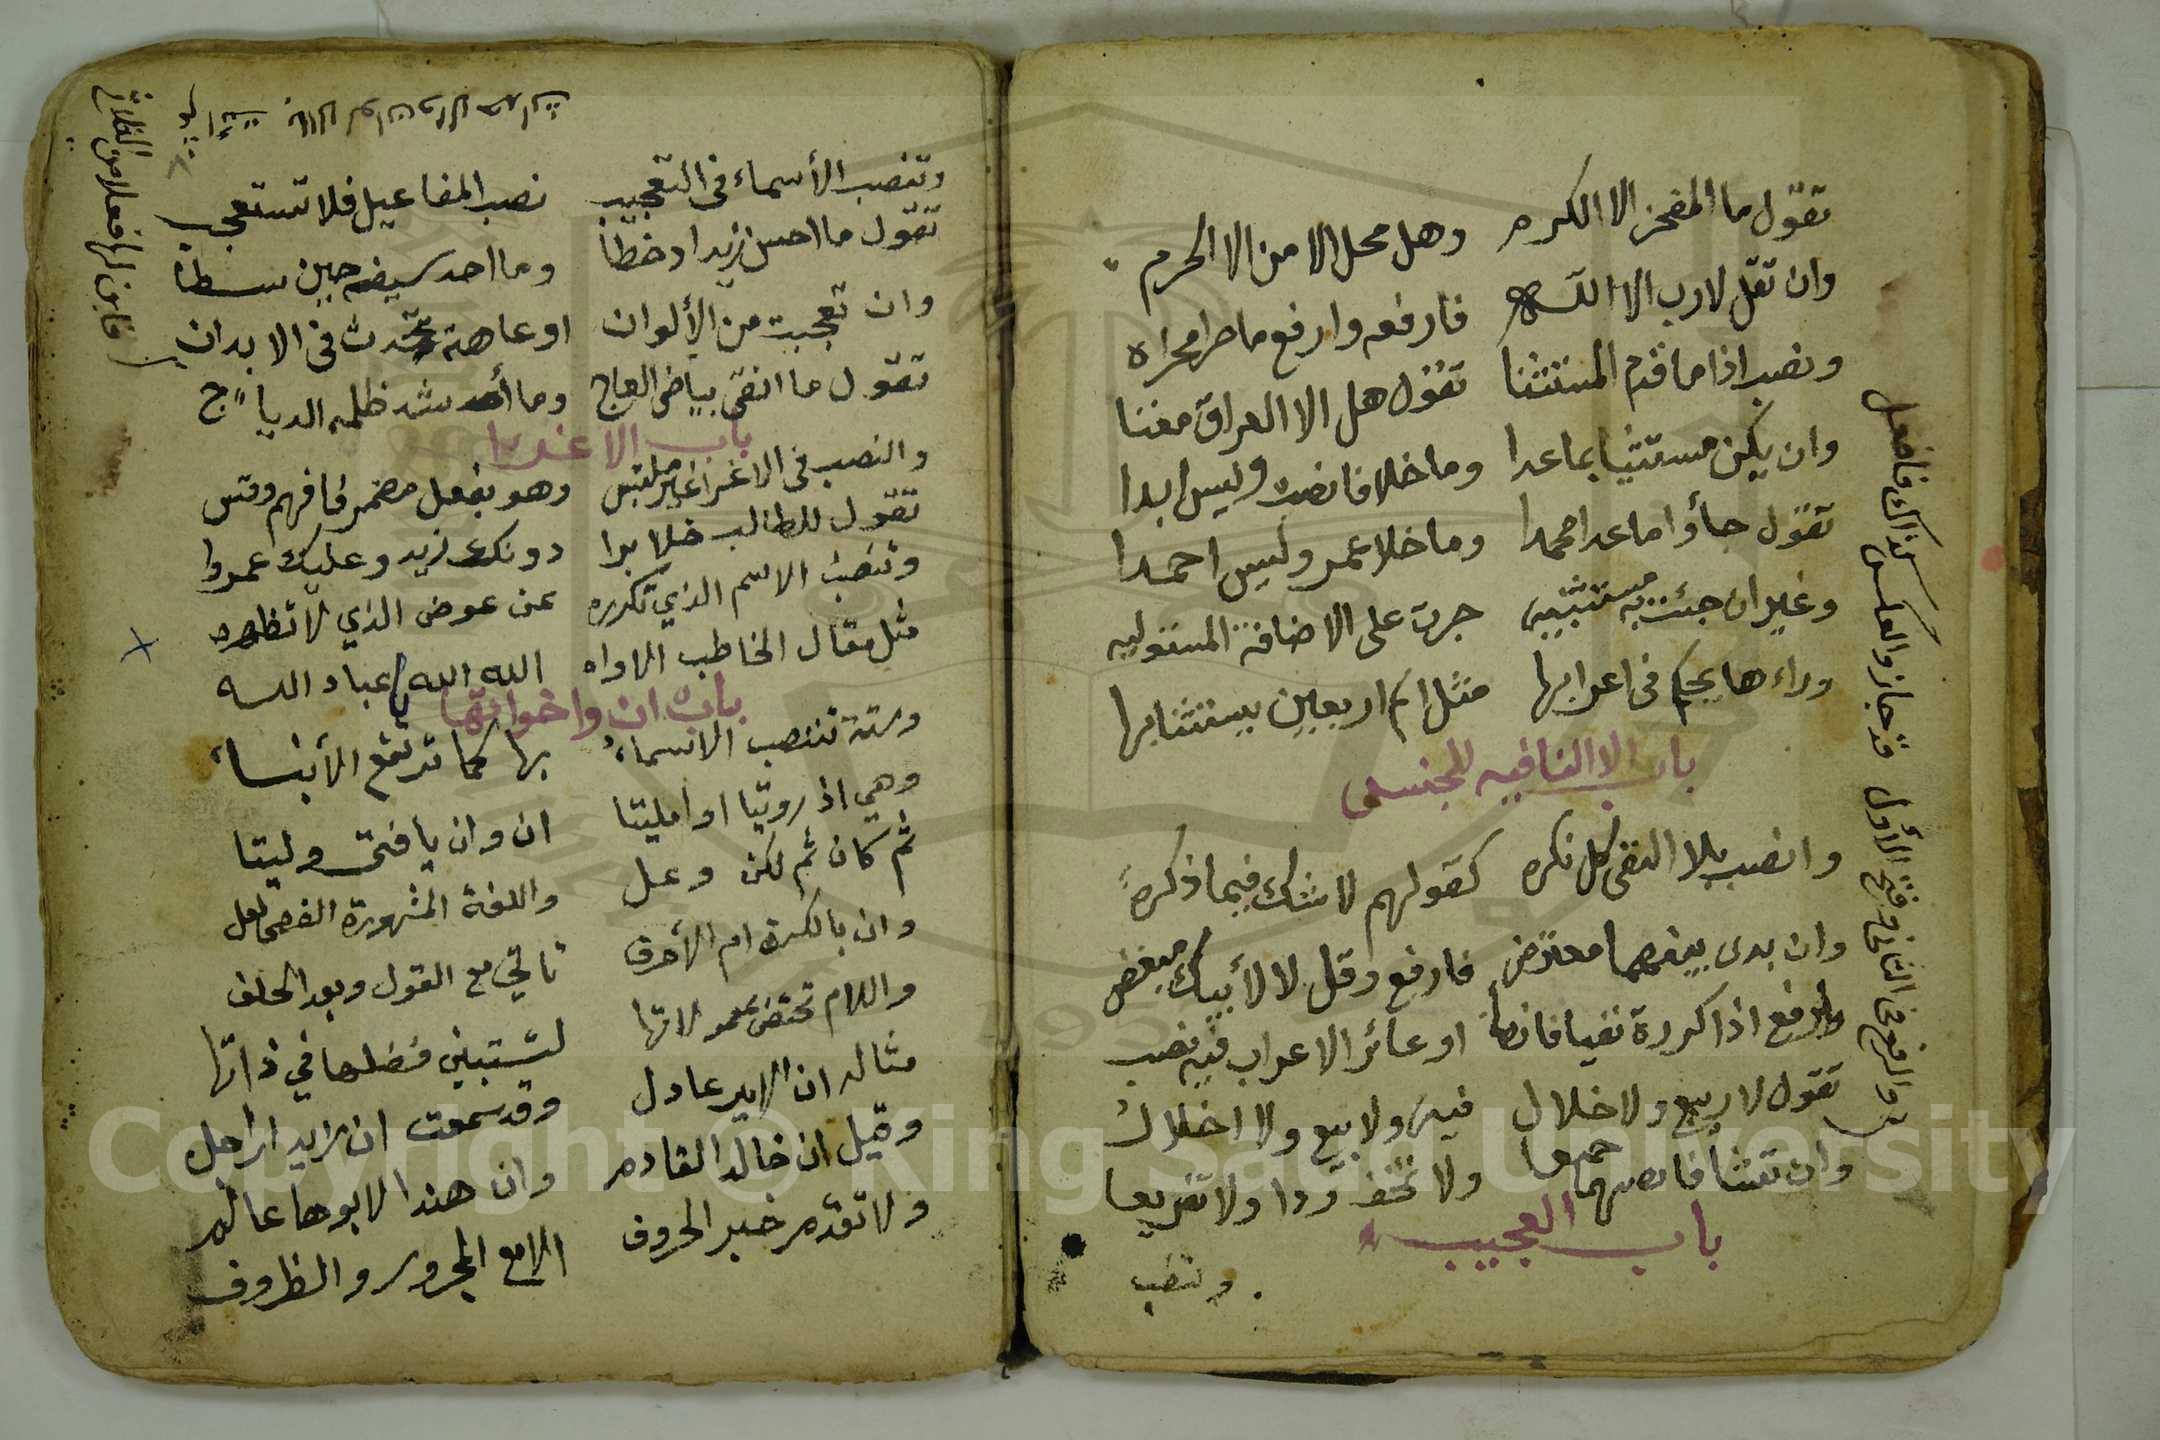 تقول ما المفخر الا الكرم وهل محل الامن الا الحرم
وان تقل لارب الا الله فارفعه وارفع ما جرا مجراه
ونصب اذا ما قدم المستثنا تقول هل الا العراق مغنا
وان يكن مستثنيا بما عدا وما خلا فانصب وليس ابدا
تقول جاؤا ما عدا محمدا وما خلا عمر وليس احمدا
وغير ان جئت به مستثنيه جرت على الاضافة المستوليه
وراءها يحكم في اعرابها مثل اسم الا حين يستثنا بها
باب لا النافيه للجنس
وانصب بلا النفي كل نكره كقولهم لا شك فيما ذكره
وان بدى بينهما معترض فارفع وقل لا لأبيك مبغض
وارفع اذا كررة نفيا فانصب او غائر الاعراب فيه نصب
تقول لا بيع ولا خلال فيه ولا بيع ولا اخلال
وان تشأ فانصبهما جميعا ولا تخف ردا ولا تقريعا
باب العجيب
وتنصب
كذاك فافعل
والعكس قد جاز
والرفع في الثاني وفتح الأول
وتنصب الأسماء في التعجيب نصب المفاعيل فلا تستعجب
تقول ما احسن زيدا اذ خطا وما احد سيفه حين سطا
وان تعجبت من الألوان او عاهة تحدث في الابدان
فابن لها فعلا من الثلاثي
تقول ما انقى بياض العاج وما أشد ظلمه الدياج
باب الاغدرا
والنصب في الاغرا غير ملتبس وهو بفعل مضمر فافهم وقس
تقول للطالب خلا برا دونك زيد وعليك عمروا
وتنصب الاسم الذي تكرره عن عوض الذي لا تظهره
مثل مقال الخاطب الاواه الله الله عباد الله
باب ان واخواتها
وستة تنتصب الاسماء بها كما ترتفع الأنباء
وهي اذ رويتا او امليتا ان وان يا فتى وليتا
ثم كان ثم لكن وعل واللغة المشهورة الفصحى لعل
وان بالكسرة ام الأحرف تأتي مع القول وبعد الحلف
واللام تختص بمعمولاتها لتستبين فضلها في ذاتها
مثاله ان الامير عادل وقد سمعت ان زيدا راحل
وقيل ان خالدا لقادم وان هندا لابوها عالم
ولا تقدم خبر الحروف الا مع المجرور والظروف